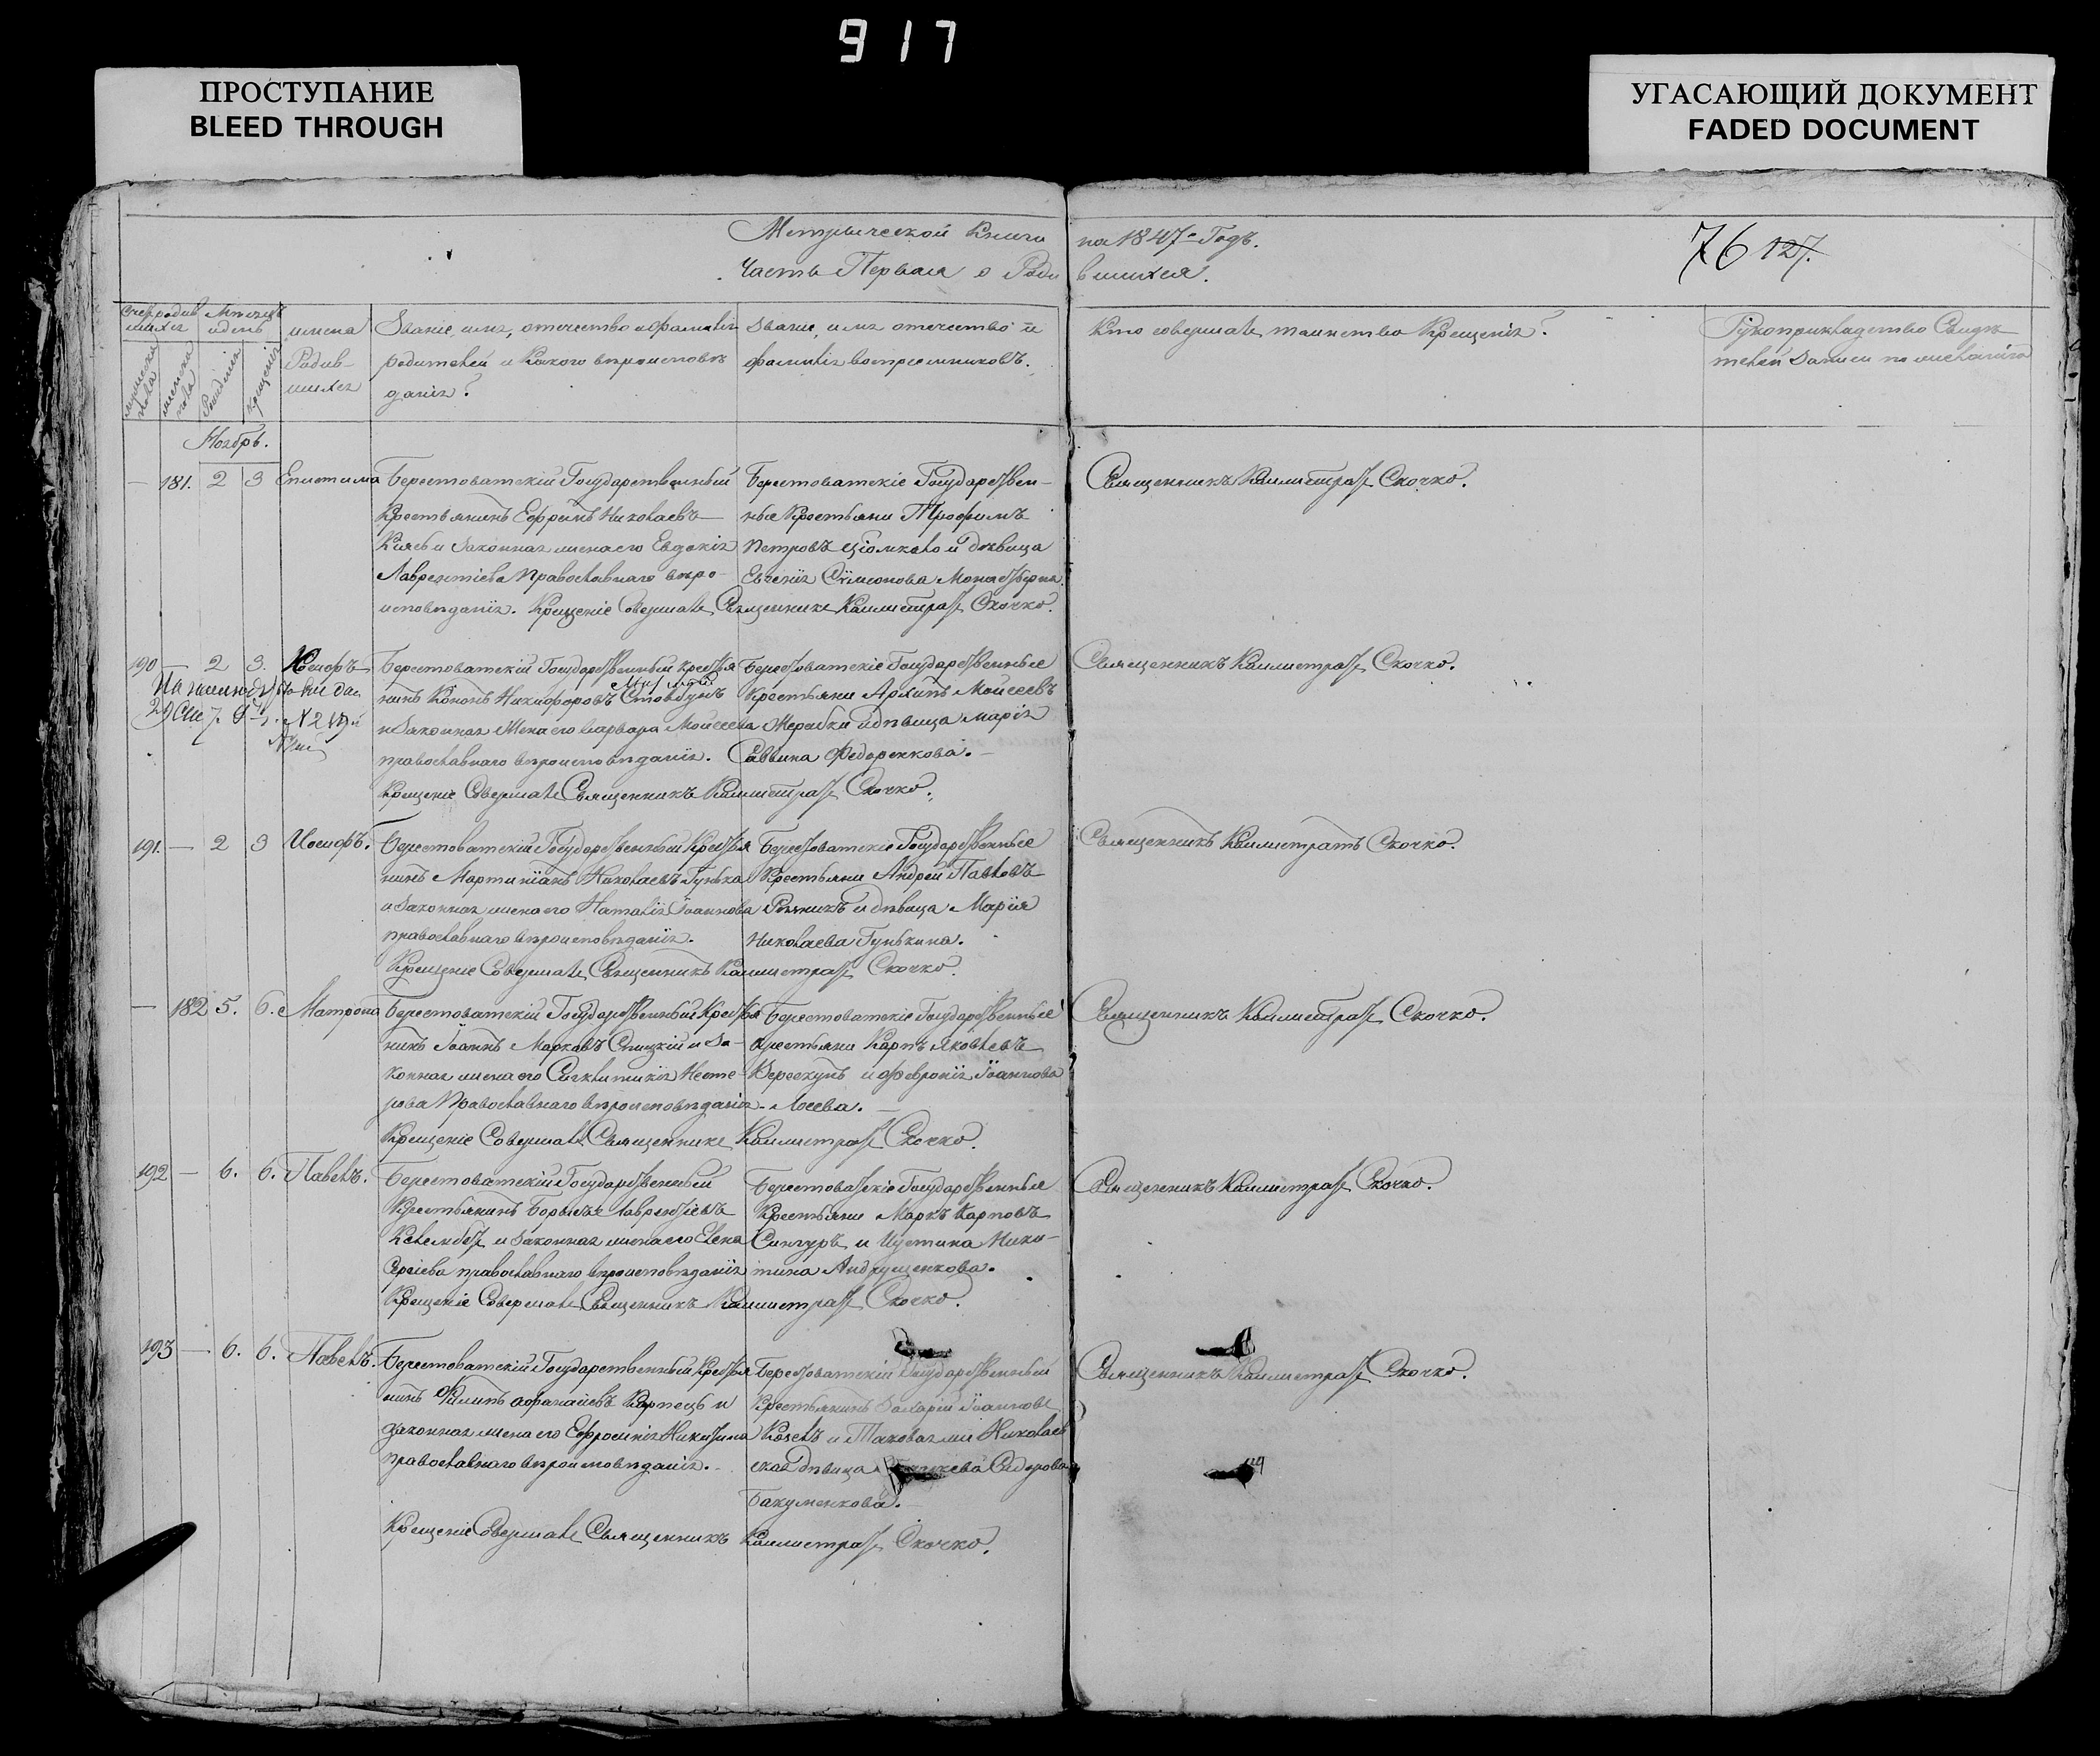 917
ПРОСТУПАНИЕ
BLEED THROUGH
УГАСАЮЩИЙ ДОКУМЕНТ
FADED DOCUMENT
Метрической Книги на 1847й Годъ.
Часть Первая о Родившихся.
76 127.
Счетъ родившихся
мужеска пола
женска пола
Мѣсяцъ и день
Рожденія
Крещенія
имена Родившихся
Званіе, имя, отечество и фамилія
родителей и какого вѣроисповѣ
данія?
Званіе, имя отечество и
фамилія воспреемниковъ.
Кто совершалъ таинство Крещенія?
Рукоприкладство Свидѣ
телей записи по желанію
Ноябрь.
— 181. 2 3 Епистима
Берестоватскій Государственный
Крестьянинъ Ефремъ Николаевъ
и законная жена его Евдокія
Лаврентіева Православнаго вѣро-
исповѣданія. Крещеніе Совершалъ Священникъ Каллистратъ Скочко.
Берестоватскіе Государствен-
ные Крестьяни Трофимъ
Петровъ и дѣвица
Евгенія Сѵмеонова
Священникъ Каллистратъ Скочко.
190 — 2 3. Иосифъ
Берестоватскій Государственный крестья
нинъ Кононъ Никифоровъ Стовбунъ
и Законная Жена его варвара Моисеева
православнаго вѣроисповѣданія.
Крещеніе Совершалъ Священникъ Каллистратъ Скочко.
Берестоватскіе Государственные
Крестьяни Моисеевъ
Жеребки и дѣвица Марія
Саввина Федоренкова.
Священникъ Каллистратъ Скочко.
191. — 2 3 Иосифъ.
Берестоватскій Государственный Крестья
нинъ Мартиніанъ Николаевъ Гунька
и законная жена его Наталія Іоаннова
православнаго вѣроисповѣданія.
Крещеніе Совершалъ Священникъ Каллистратъ Скочко.
Берестоватскіе Государственные
Крестьяни Андрей Павловъ
Рѣзникъ и дѣвица Марія
Николаева Гунькина.
Священникъ Каллистратъ Скочко.
— 182 5. 6. Матрона
Берестоватскій Государственный Крестья
нинъ Іоаннъ Марковъ Спицкій и за-
конная жена его Сигклитикія Несте-
рова Православнаго вѣроисповѣданія.
Крещеніе Совершалъ Священникъ Каллистратъ Скочко.
Берестоватскіе Государственные
крестьяни Карпъ Яковлевъ
и Февронія Іоаннова
Лосева.
Священникъ Каллистратъ Скочко.
192 — 6. 6. Павелъ.
Берестоватскій Государственный
Крестьянинъ Борисъ Лаврентіевъ
и законная жена его Елена
Сергіева православнаго вѣроисповѣданія
Крещеніе Совершалъ Священникъ Каллистратъ Скочко.
Берестоватскіе Государственные
Крестьяни Маркъ Карповъ
и Иустина Ники-
тина Андрущенкова.
Священникъ Каллистратъ Скочко.
193 — 6. 6. Павелъ.
Берестоватскій Государственный Крестья
нинъ Филипъ Афанасіевъ Карпецъ и
законная жена его Ефросинія Никитина
православнаго вѣроисповѣданія.
Крещеніе Совершалъ Священникъ Каллистратъ Скочко.
Берестоватскій Государственный
Крестьянинъ Захарій Іоанновъ
Козелъ и Николаев
ская дѣвица Сидорова
Бакуменкова.
Священникъ Каллистратъ Скочко.